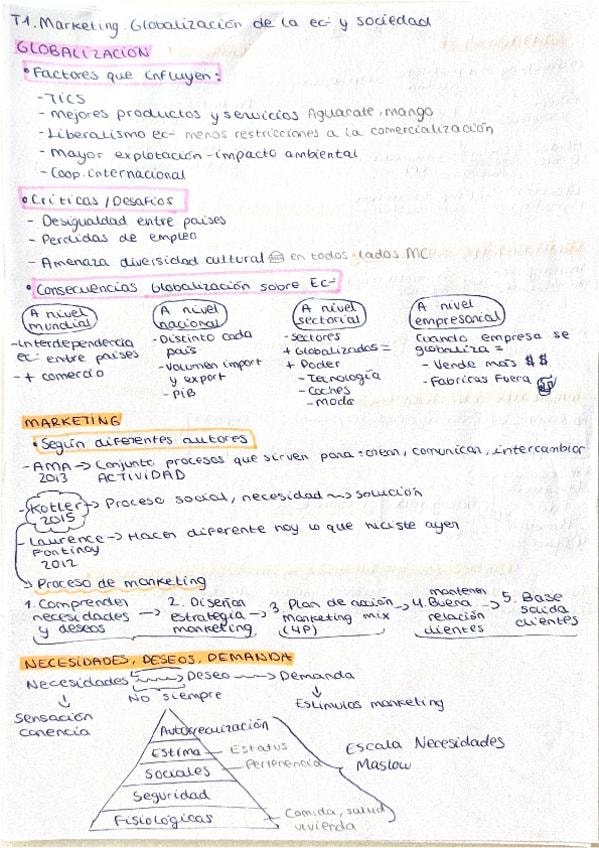 T1. Marketing. Globalización de la ec- y sociedad
GLOBALIZACIÓN
• Factores que influyen:
- TICS
- Mejores productos y servicios Aguacate, mango
- Liberalismo ec- menos restricciones a la comercialización
- Mayor explotación - impacto ambiental
- Coop. internacional
• Críticas / Desafíos
- Desigualdad entre países
- Perdidas de empleo
- Amenaza diversidad cultural en todos lados MC
• Consecuencias Globalización sobre Ec-
A nivel mundial
- Interdependencia
ec- entre países
- + comercio
A nivel nacional
- Distinto cada
país
- Volumen import
y export
- PiB
A nivel sectorial
- Sectores
+ Globalizados =
+ Poder
- Tecnología
- Coches
- Moda
A nivel empresarial
Cuando empresa se
globaliza =
- Vende más $ $
- Fabricas Fuera
MARKETING
• Según diferentes autores
- AMA → Conjunto procesos que sirven para: crear, comunicar, intercambiar
2013 ACTIVIDAD
- Kotler → Proceso social, necesidad → solución
2015
- Laurence → Hacer diferente hoy lo que hiciste ayer
2012
Proceso de marketing
1. Comprender
necesidades
y deseos
→ 2. Diseñar
estrategia
marketing
→ 3. Plan de acción
marketing mix
(4P)
→ 4. mantener
Buena
relación
clientes
→ 5. Base
solida
clientes
NECESIDADES, DESEOS, DEMANDA
Necesidades → Deseo → Demanda
No siempre
Estimulos marketing
Sensación
carencia
Autorrealización
Estima - Estatus
Sociales - Pertenencia
Seguridad
Fisiológicas - Comida, salud
vivienda
Escala Necesidades
Maslow